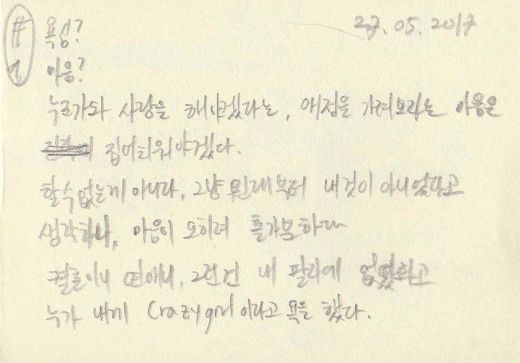 #1 욕심? 27.05.2017
마음?
누군가와 사랑을 해보겠다는, 애정을 가져보려는 마음은
집어치워야겠다.
할 수 없는게 아니다, 그냥 원래부터 내것이 아니었다고
생각하니, 마음이 오히려 홀가분하다
결혼이니 연애니, 그런건 내 팔자에 없었다고
누가 내게 Crazy girl 이라고 욕을 했다.